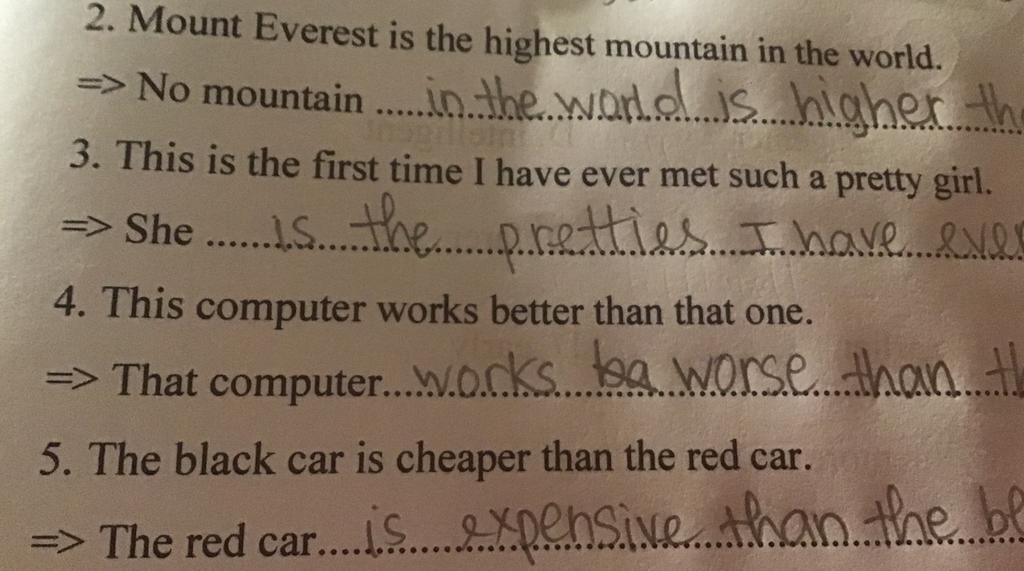 2. Mount Everest is the highest mountain in the world.
=> No mountain .....in the world is higher
3. This is the first time I have ever met such a pretty girl.
=> She ......is the pretties I have ever
4. This computer works better than that one.
=> That computer...works worse than
5. The black car is cheaper than the red car.
=> The red car....is expensive than the